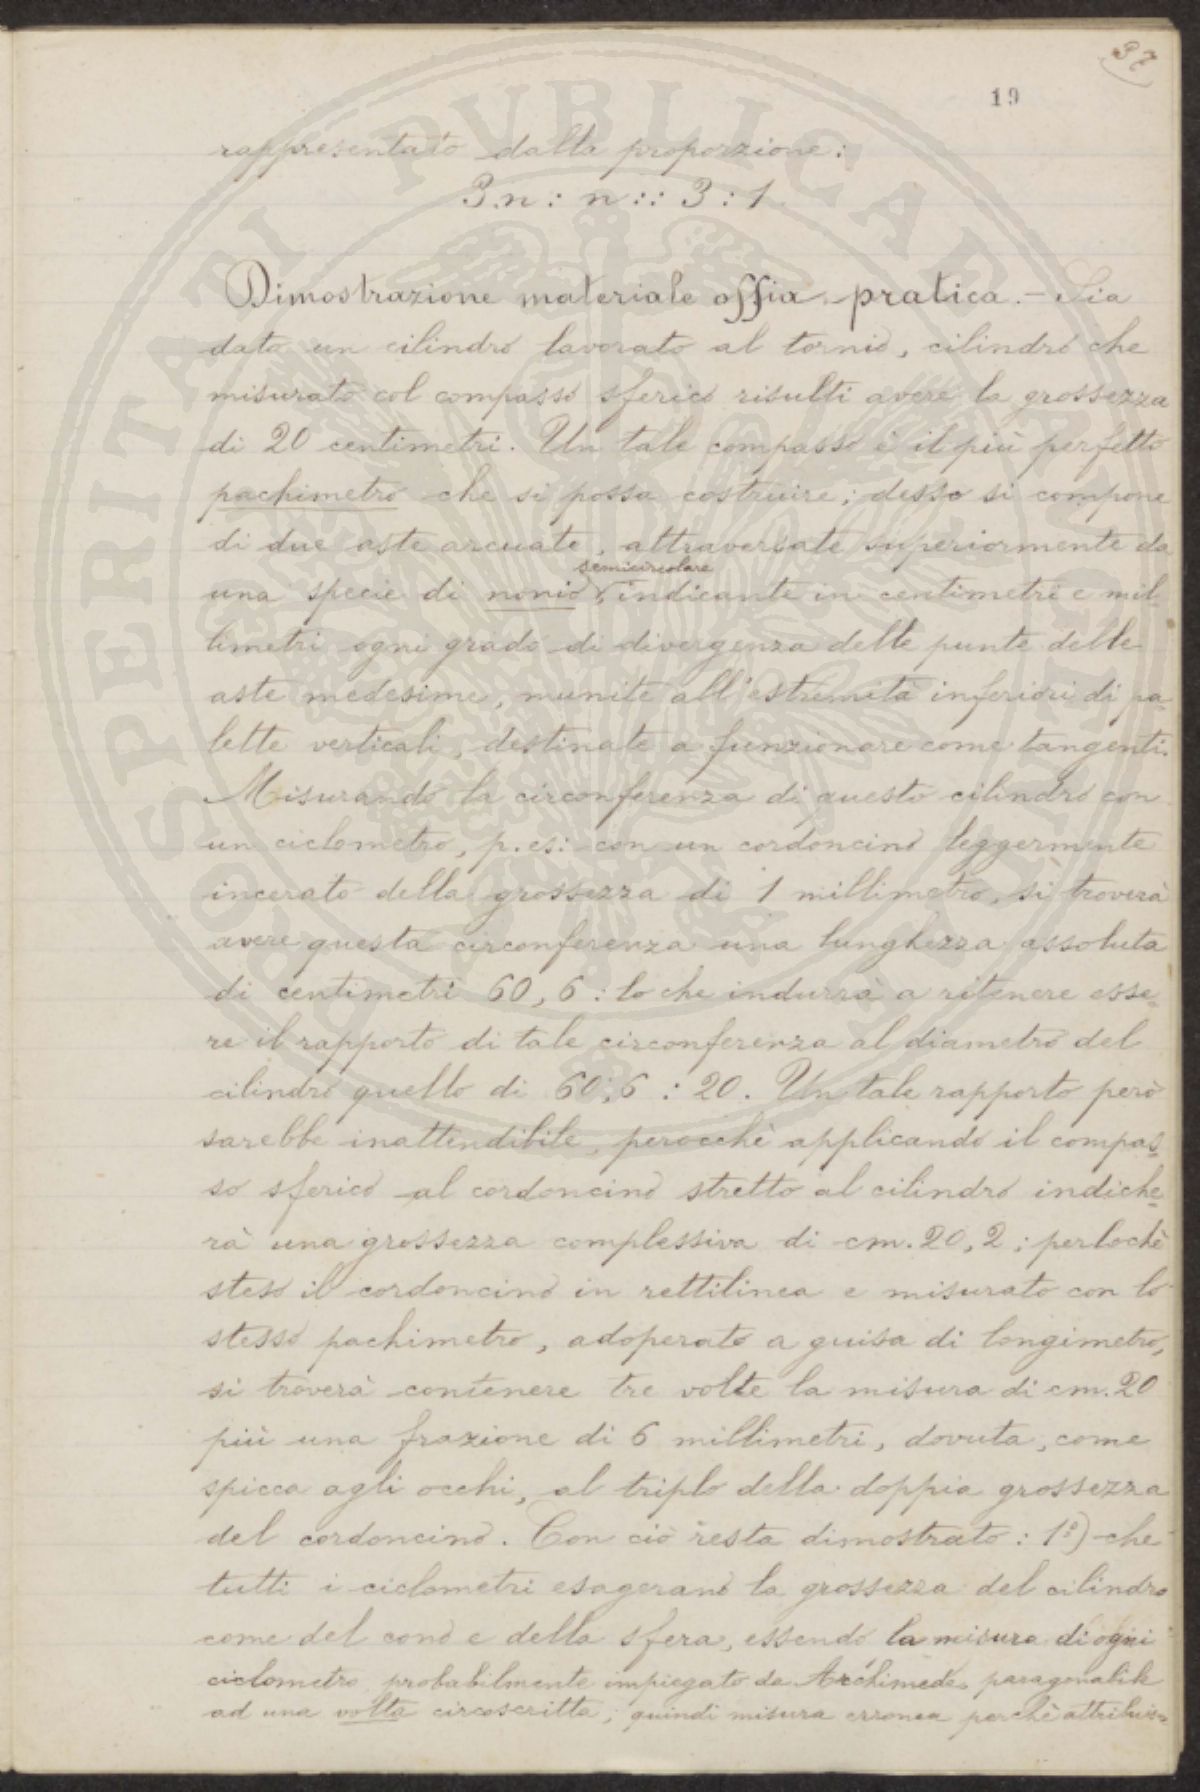 37
19
rappresentato dalla proporzione:
3.n : n :: 3 : 1.
Dimostrazione materiale ossia pratica. – Sia
dato un cilindro lavorato al tornio, cilindro che
misurato col compasso sferico risulti avere la grossezza
di 20 centimetri. Un tale compasso è il più perfetto
pachimetro che si possa costruire; desso si compone
di due aste arcuate, attraversate superiormente da
semicircolare
una specie di nonio, indicante in centimetri e mil-
limetri ogni grado di divergenza delle punte delle
aste medesime, munite all'estremità inferiori di pa-
lette verticali, destinate a funzionare come tangenti.
Misurando la circonferenza di questo cilindro con
un ciclometro, p. es: con un cordoncino leggermente
incerato della grossezza di 1 millimetro, si troverà
avere questa circonferenza una lunghezza assoluta
di centimetri 60,6: lo che indurrà a ritenere esse-
re il rapporto di tale circonferenza al diametro del
cilindro quello di 60,6 : 20. Un tale rapporto però
sarebbe inattendibile, perocchè applicando il compas-
so sferico al cordoncino stretto al cilindro indiche-
rà una grossezza complessiva di cm. 20,2; perlochè
steso il cordoncino in rettilinea e misurato con lo
stesso pachimetro, adoperato a guisa di longimetro,
si troverà contenere tre volte la misura di cm. 20
più una frazione di 6 millimetri, dovuta, come
spicca agli occhi, al triplo della doppia grossezza
del cordoncino. Con ciò resta dimostrato: 1º) che
tutti i ciclometri esagerano la grossezza del cilindro
come del cono e della sfera, essendo la misura di ogni
ciclometro probabilmente impiegato da Archimede paragonabile
ad una volta circoscritta; quindi misura erronea perchè attribuen-
PROSPERITATI PVBLICAE